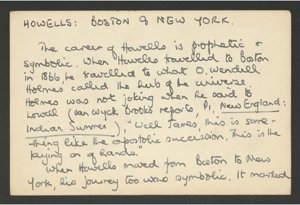 HOWELLS: BOSTON & NEW YORK.
The career of Howells is prophetic &
symbolic. When Howells travelled to Boston
in 1866, he travelled to what O. Wendell
Holmes called the hub of the universe.
Holmes was not joking when he said to
Lowell (Van Wyck Brooks reports P1, New England:
Indian Summer), "Well James, this is some-
thing like the apostolic succession. This is the
laying on of hands."
When Howells moved from Boston to New
York, his journey too was symbolic. It marked